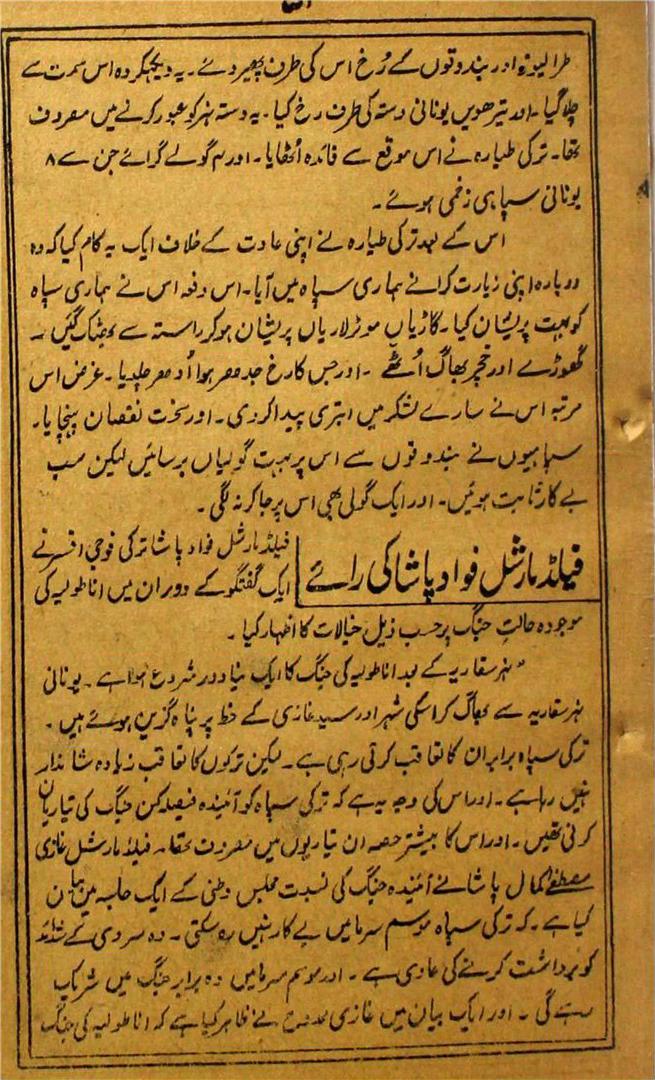 طرالیوز اور بندوقوں کے رُخ اس کی طرف پھیر دئے۔ یہ دیکھکر وہ اس سمت سے
چلا گیا۔ اور تیرھویں یونانی دستہ کی طرف رخ کیا۔ یہ دستہ نہر کو عبور کرنے میں مصروف
تھا۔ ترکی طیارہ نے اس موقع سے فائدہ اُٹھایا۔ اور ۳ گولے گرائے جن سے ۸
یونانی سپاہی زخمی ہوئے۔
اس کے بعد ترکی طیارہ نے اپنی عادت کے خلاف ایک یہ کام کیا کہ وہ
دوبارہ اپنی زیارت کرانے ہماری سپاہ میں آیا۔ اس دفعہ اس نے ہماری سپاہ
کو بہت پریشان کیا۔ گاڑیاں موٹر لاریاں پریشان ہوکر راستہ سے بھٹک گئیں۔
گھوڑے اور خچر بھاگ اُٹھے۔ اور جس کا رخ جدھر ہوا اُدھر چلدیا۔ غرض اس
مرتبہ اس نے سارے لشکر میں ابتری پیدا کردی۔ اور سخت نقصان پہنچایا۔
سپاہیوں نے بندوقوں سے اس پر بہت گولیاں برسائیں لیکن سب
بے کار ثابت ہوئیں۔ اور ایک گولی بھی اس پر جاکر نہ لگی۔
فیلڈ مارشل فواد پاشا کی رائے
فیلڈ مارشل فواد پاشا ترکی فوجی افسر نے
ایک گفتگو کے دوران میں اناطولیہ کی
موجودہ حالتِ جنگ پر حسب ذیل خیالات کا اظہار کیا۔
"نہر سقاریہ کے بعد اناطولیہ کی جنگ کا ایک نیا دور شروع ہوا ہے۔ یونانی
نہر سقاریہ سے بھاگ کر اسکی شہر اور سید غازی کے خط پر پناہ گزین ہوئے ہیں۔
ترکی سپاہ برابر ان کا تعاقب کرتی رہی ہے۔ لیکن ترکوں کا تعاقب زیادہ شاندار
نہیں رہا ہے۔ اور اس کی وجہ یہ ہے کہ ترکی سپاہ کو آئیندہ فیصلہ کن جنگ کی تیاریاں
کرنی تھیں۔ اور اس کا بیشتر حصہ ان تیاریوں میں مصروف تھا۔ فیلڈ مارشل غازی
مصطفےٰ کمال پاشا نے آئیندہ جنگ کی نسبت مجلس وطنی کے ایک جلسہ میں بیان
کیا ہے۔ کہ ترکی سپاہ موسم سرما میں بے کار نہیں رہ سکتی۔ وہ سردی کے شدائد
کو برداشت کرنے کی عادی ہے۔ اور موسم سرما میں وہ برابر جنگ میں شریک
رہے گی۔ اور ایک بیان میں غازی ممدوح نے ظاہر کیا ہے کہ اناطولیہ کی جنگ